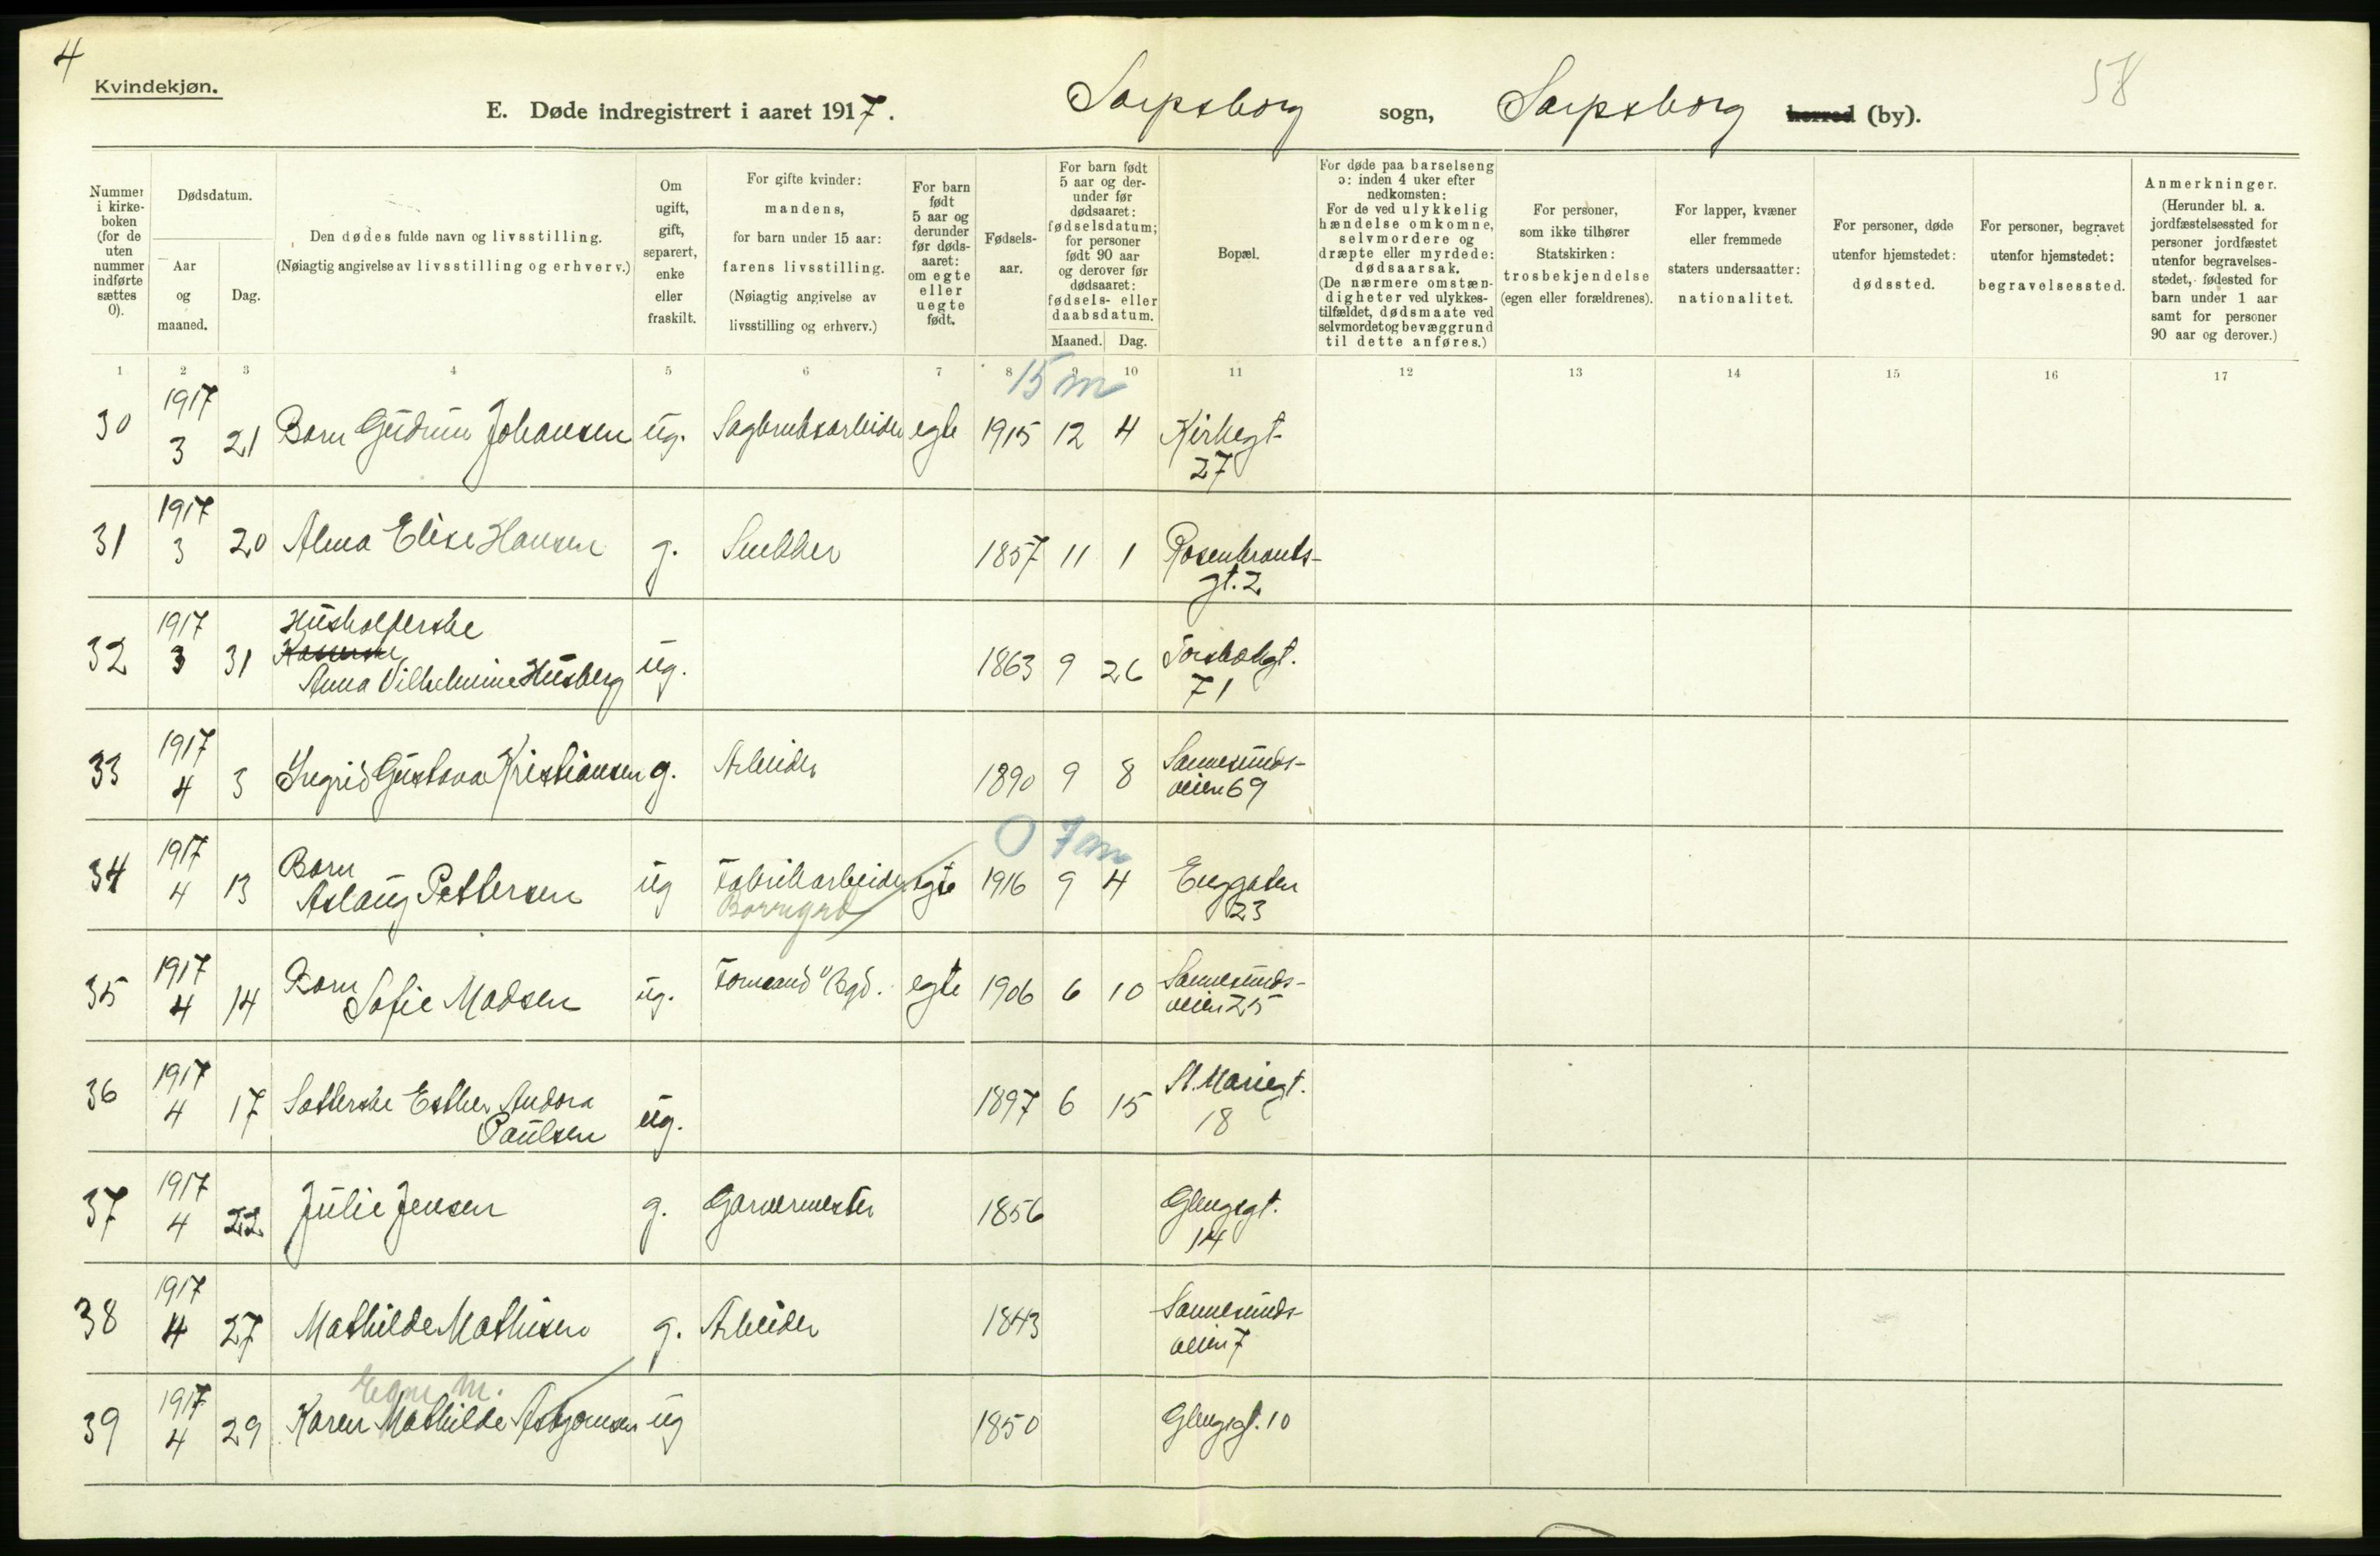 4
Kvindekjøn.
E. Døde indregistrert i aaret 1917. Sarpsborg sogn, Sarpsborg herred (by).
58
Nummer i kirke-boken (for de uten nummer indførte sættes 0).
Dødsdatum.
Aar og maaned.
Dag.
Den dødes fulde navn og livsstilling.
(Nøiagtig angivelse av livsstilling og erhverv.)
Om ugift, gift, separert, enke eller fraskilt.
For gifte kvinder:
mandens,
for barn under 15 aar:
farens livsstilling.
(Nøiagtig angivelse av
livsstilling og erhverv.)
For barn født 5 aar og derunder før døds-aaret: om egte eller uegte født.
Fødsels-aar.
For barn født 5 aar og der-under før dødsaaret: fødselsdatum; for personer født 90 aar og derover før dødsaaret: fødsels- eller daabsdatum.
Maaned. Dag.
Bopæl.
For døde paa barselseng
ɔ: inden 4 uker efter
nedkomsten:
For de ved ulykkelig
hændelse omkomne,
selvmordere og
dræpte eller myrdede:
dødsaarsak.
(De nærmere omstæn-
digheter ved ulykkes-
tilfældet, dødsmaate ved
selvmordet og bevæggrund
til dette anføres.)
For personer,
som ikke tilhører
Statskirken:
trosbekjendelse
(egen eller forældrenes).
For lapper, kvæner
eller fremmede
staters undersaatter:
nationalitet.
For personer, døde
utenfor hjemstedet:
dødssted.
For personer, begravet
utenfor hjemstedet:
begravelsessted.
Anmerkninger.
(Herunder bl. a.
jordfæstelsessted for
personer jordfæstet
utenfor begravelses-
stedet, fødested for
barn under 1 aar
samt for personer
90 aar og derover.)
1 2 3 4 5 6 7 8 9 10 11 12 13 14 15 16 17
15 m
30 1917 3 21 Barn Gudrun Johansen ug. Sagbruksarbeider egte 1915 12 4 Kirkegt. 27
31 1917 3 20 Alma Elise Hansen g. Snekker 1857 11 1 Rosenkrants-gt. 2
32 1917 3 31 Husholderske Anna Vilhelmine Husberg ug. 1863 9 26 Torsbækgt. 71
33 1917 4 3 Ingrid Gustava Kristiansen g. Arbeider 1890 9 8 Sannesunds-veien 69
0 7 m
34 1917 4 13 Barn Aslaug Pettersen ug Fabrikarbeider Borregård egte 1916 9 4 Enggaten 23
35 1917 4 14 Barn Sofie Madsen ug. Formand v/ Bgd. egte 1906 6 10 Sannesunds-veien 25
36 1917 4 17 Sætterske Esther Andora Paulsen ug. 1897 6 15 St. Mariegt. 18
37 1917 4 22 Julie Jensen g. Garvermester 1856 Glengsgt. 14
38 1917 4 27 Mathilde Mathisen g. Arbeider 1843 Sannesunds-veien 7
39 1917 4 29 Egne m. Karen Mathilde Asbjørnsen ug 1850 Glengsgt. 10